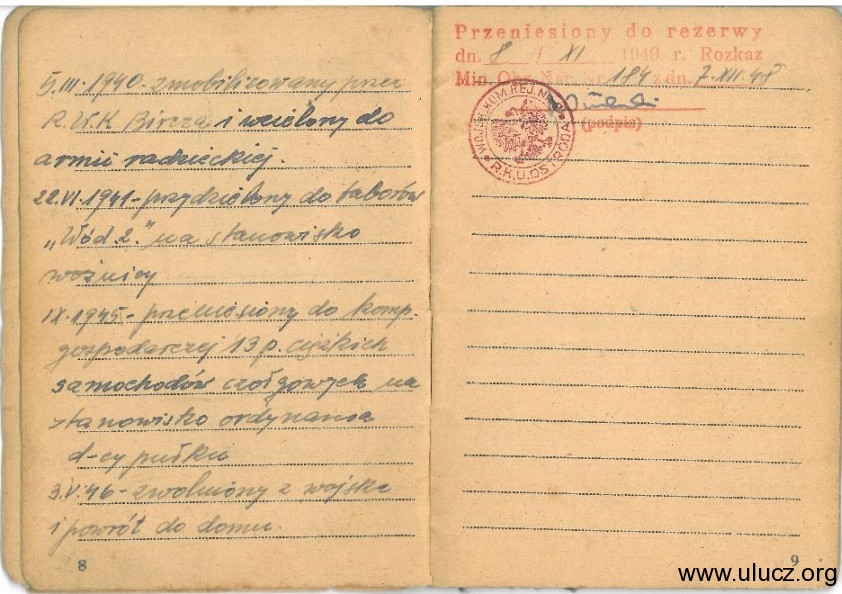 5.III.1940. zmobilizowany przez
R.W.K Bircza i wcielony do
armii radzieckiej.
22.VI.1941 - przydzielony do taborów
„Wód 2." na stanowisko
woźnicy
IX.1945 - przeniesiony do komp.
gospodarczej 13 p. ciężkich
samochodów czołgowych na
stanowisko ordynansa
d-cy pułku
3.V.46 - zwolniony z wojska
i powrót do domu.
8
Przeniesiony do rezerwy
dn. 8 / XI 1949 r. Rozkaz
Min. Nr. 184 z dn. 7.XII.48
(podpis)
WOJSK. KOM. REJ. R.K.U. OSTRÓDA
9
www.ulucz.org